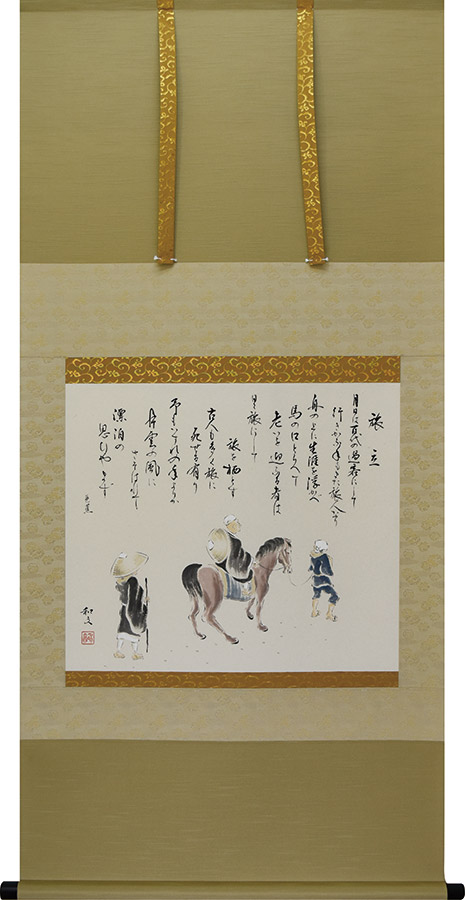 旅立
月日は百代の過客にして
行きかふ年もまた旅人なり
舟の上に生涯を浮へ
馬の口とらへて
老いを迎ふる者は
日々旅にして
旅を栖とす
古人も多く旅に
死せる有り
予もいづれの年よりか
片雲の風に
さそはれて
漂泊の
思ひやまず
芭蕉
和文